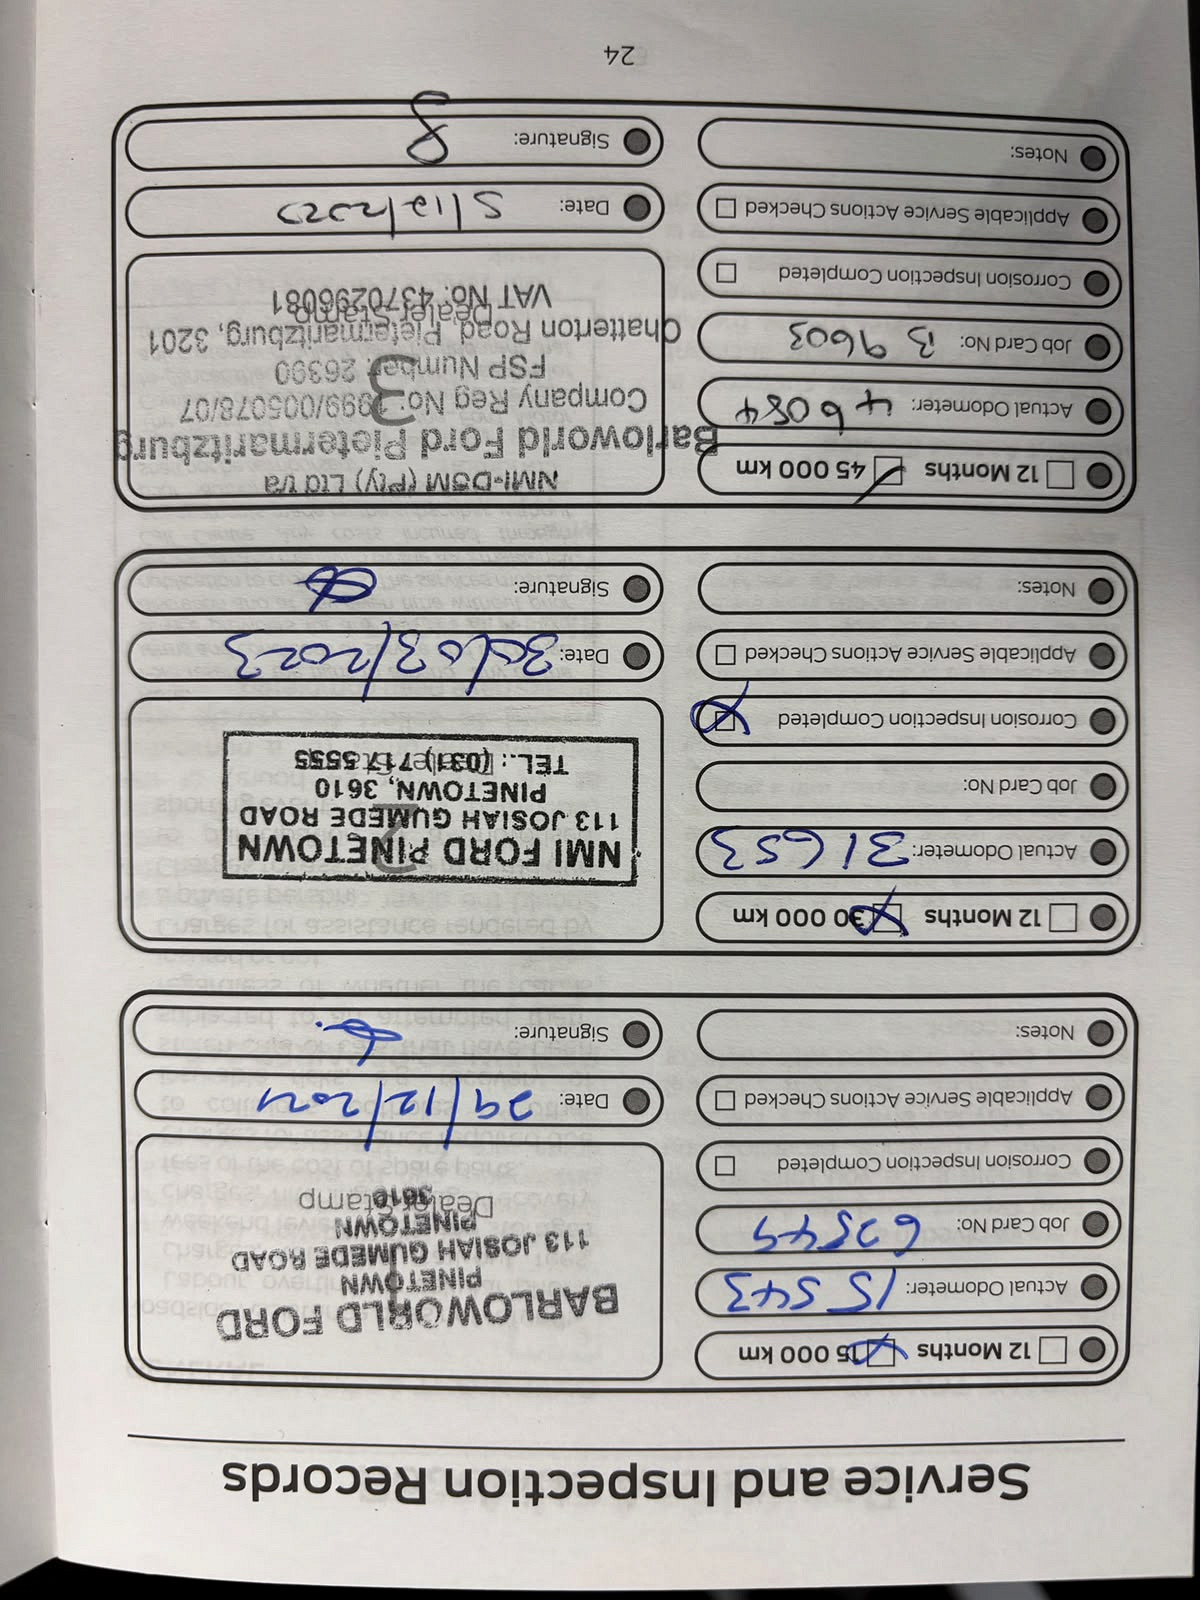 Service and Inspection Records
12 Months 15 000 km
Actual Odometer: 15 543
Job Card No:
Corrosion Inspection Completed
Applicable Service Actions Checked
Notes:
BARLOWORLD FORD
PINETOWN
113 JOSIAH GUMEDE ROAD
PINETOWN
3610
Dealer Stamp
Date: 29/12/2021
Signature:
12 Months 30 000 km
Actual Odometer: 31653
Job Card No:
Corrosion Inspection Completed
Applicable Service Actions Checked
Notes:
2
NMI FORD PINETOWN
113 JOSIAH GUMEDE ROAD
PINETOWN, 3610
TEL.: (031) 717 5555
Dealer Stamp
Date: 30/03/2023
Signature:
12 Months 45 000 km
Actual Odometer: 46084
Job Card No: B 9603
Corrosion Inspection Completed
Applicable Service Actions Checked
Notes:
3
NMI-DSM (Pty) Ltd t/a
Barloworld Ford Pietermaritzburg
Company Reg No: 1999/005078/07
FSP Number: 26390
Chatterton Road, Pietermaritzburg, 3201
Dealer Stamp
VAT No: 4370296081
Date:
Signature:
24